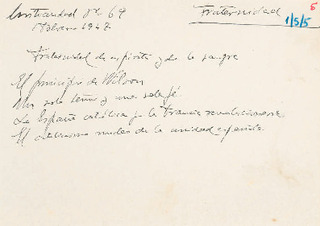 Cristiandad nº 69
Febrero 1947
Fraternidad
6
1/5/5
Fraternidad de espíritu y de la sangre
El principio de Wilson
Un solo tema y una sola fé
La España católica y la Francia revolucionaria
El nudos de la unidad española